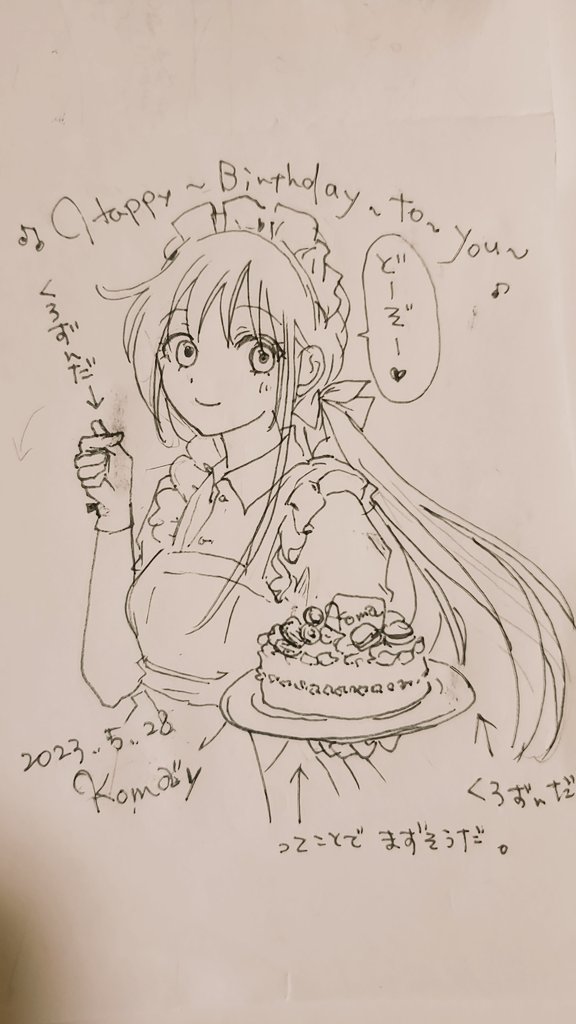 ♪ Happy ~ Birthday ~ to ~ you ~ ♪
どーぞー♥
くろずんだ→
Koma
2023..5..28
くろずんだ
ってことで まずそうだ。